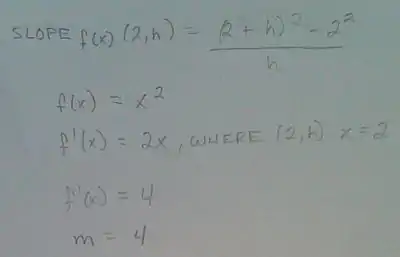 SLOPE f(x) (2,h) = (2 + h)² - 2² / h
f(x) = x²
f'(x) = 2x, WHERE (2,h) x = 2
f'(x) = 4
m = 4